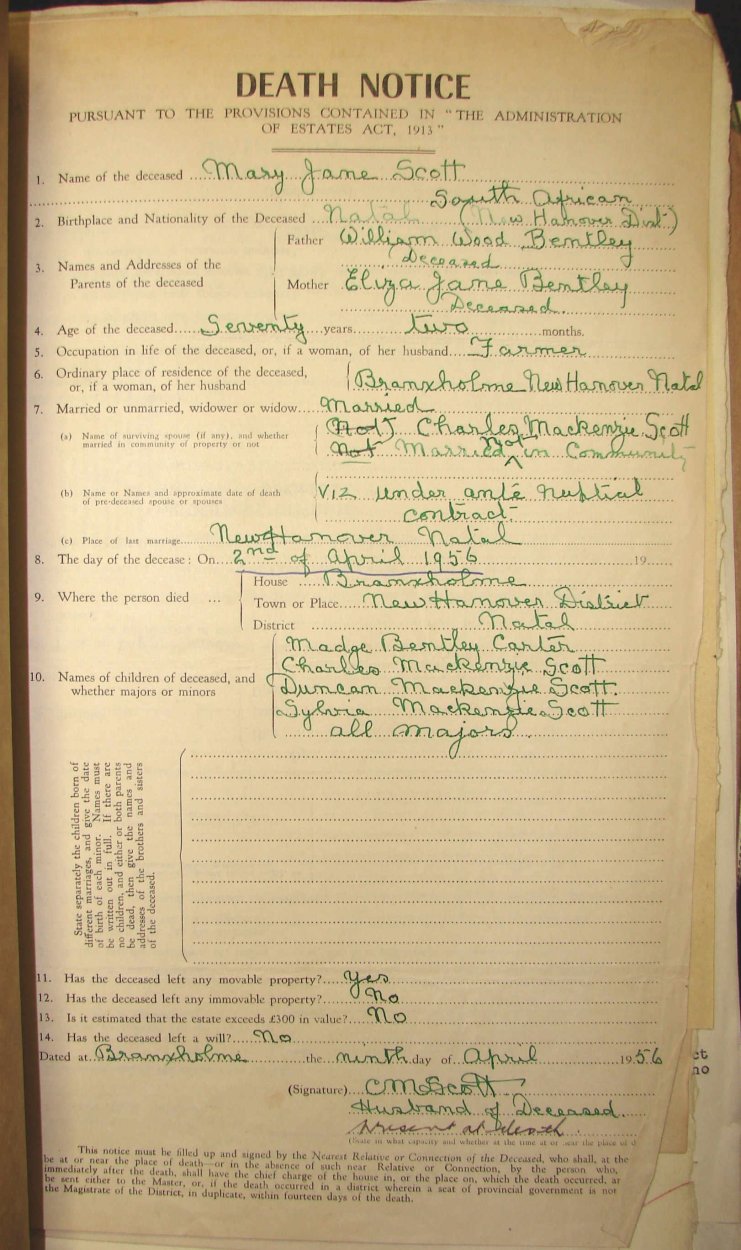 DEATH NOTICE
PURSUANT TO THE PROVISIONS CONTAINED IN "THE ADMINISTRATION
OF ESTATES ACT, 1913"
1. Name of the deceased Mary Jane Scott
South African
2. Birthplace and Nationality of the Deceased Natal (New Hanover Dist)
3. Names and Addresses of the Parents of the deceased
Father William Wood Bentley
Deceased
Mother Eliza Jane Bentley
Deceased.
4. Age of the deceased Seventy years two months.
5. Occupation in life of the deceased, or, if a woman, of her husband Farmer
6. Ordinary place of residence of the deceased,
or, if a woman, of her husband Branxholme New Hanover Natal
7. Married or unmarried, widower or widow Married
(a) Name of surviving spouse (if any), and whether
married in community of property or not
Charles Mackenzie Scott
Not Married Not in Community
(b) Name or Names and approximate date of death
of pre-deceased spouse or spouses
Viz under ante nuptial
contract.
(c) Place of last marriage New Hanover Natal
8. The day of the decease: On 2nd of April 1956 19
9. Where the person died ...
House Branxholme
Town or Place New Hanover District
District Natal
10. Names of children of deceased, and
whether majors or minors
Madge Bentley Carter
Charles Mackenzie Scott
Duncan Mackenzie Scott.
Sylvia Mackenzie Scott
all majors.
State separately the children born of
different marriages, and give the date
of birth of each minor. Names must
be written out in full. If there are
no children, and either or both parents
be dead, then give the names and
addresses of the brothers and sisters
of the deceased.
11. Has the deceased left any movable property? Yes
12. Has the deceased left any immovable property? No
13. Is it estimated that the estate exceeds £300 in value? No
14. Has the deceased left a will? No
Dated at Branxholme the ninth day of April 1956
(Signature) C M Scott
Husband of Deceased.
Present at death
(State in what capacity and whether at the time at or near the place of d
This notice must be filled up and signed by the Nearest Relative or Connection of the Deceased, who shall, at the
be at or near the place of death—or in the absence of such near Relative or Connection, by the person who,
immediately after the death, shall have the chief charge of the house in, or the place on, which the death occurred, ar
be sent either to the Master, or, if the death occurred in a district wherein a seat of provincial government is not
the Magistrate of the District, in duplicate, within fourteen days of the death.
ct
no